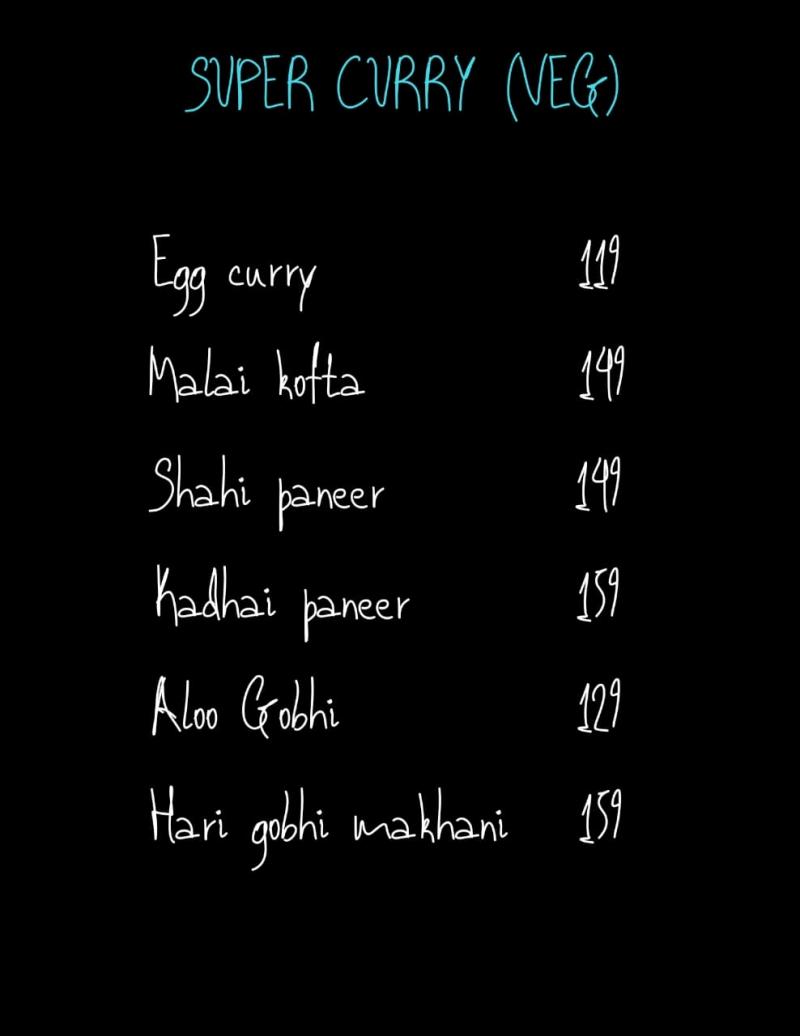 SUPER CURRY (VEG)
Egg curry 119
Malai kofta 149
Shahi paneer 149
Kadhai paneer 159
Aloo Gobhi 129
Hari gobhi makhani 159